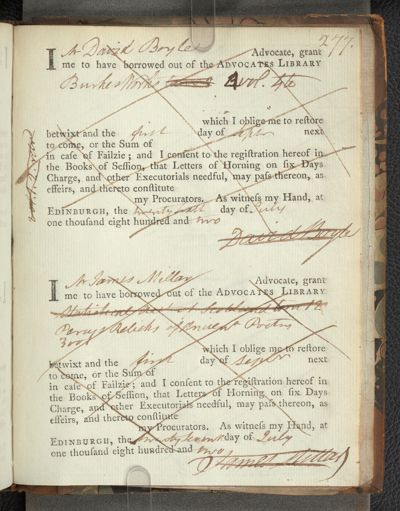 277.
I Mr David Boyle Advocate, grant
me to have borrowed out of the ADVOCATES LIBRARY
Burkes Works 2 vol. 4to
which I oblige me to reſtore
betwixt and the first day of next
to come, or the Sum of
in caſe of Failzie; and I conſent to the regiſtration hereof in
the Books of Seſſion, that Letters of Horning on ſix Days
Charge, and other Executorials needful, may paſs thereon, as
effeirs, and thereto conſtitute
my Procurators. As witneſs my Hand, at
EDINBURGH, the day of July
one thouſand eight hundred and two
David Boyle
I Mr James Millar Advocate, grant
me to have borrowed out of the ADVOCATES LIBRARY
Statistical of Scotland
Percy's Relicks of Ancient Poetry
3 vol
which I oblige me to reſtore
betwixt and the first day of next
to come, or the Sum of
in caſe of Failzie; and I conſent to the regiſtration hereof in
the Books of Seſſion, that Letters of Horning on ſix Days
Charge, and other Executorials needful, may paſs thereon, as
effeirs, and thereto conſtitute
my Procurators. As witneſs my Hand, at
EDINBURGH, the day of July
one thouſand eight hundred and two
James Millar